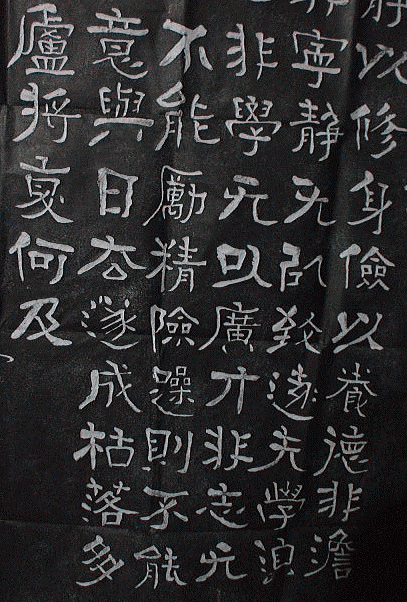 靜以修身儉以養德非澹
非寧靜无㠯致遠夫學湏
非學无㠯廣才非志无
不能勵精險躁則不能
意與日去遂成枯落多
廬將复何及